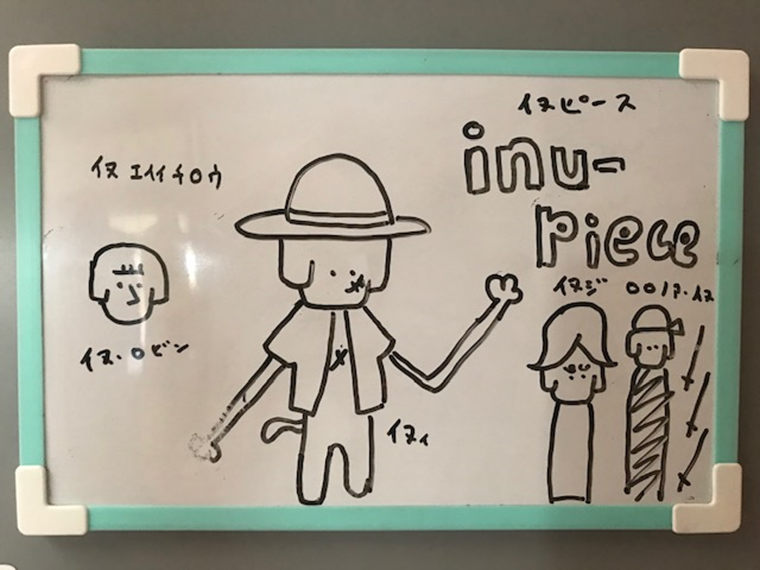 イヌピース
inu-
piece
イヌ エイイチロウ
イヌ・ロビン
イヌィ
イヌジ
ロロノア・イヌ